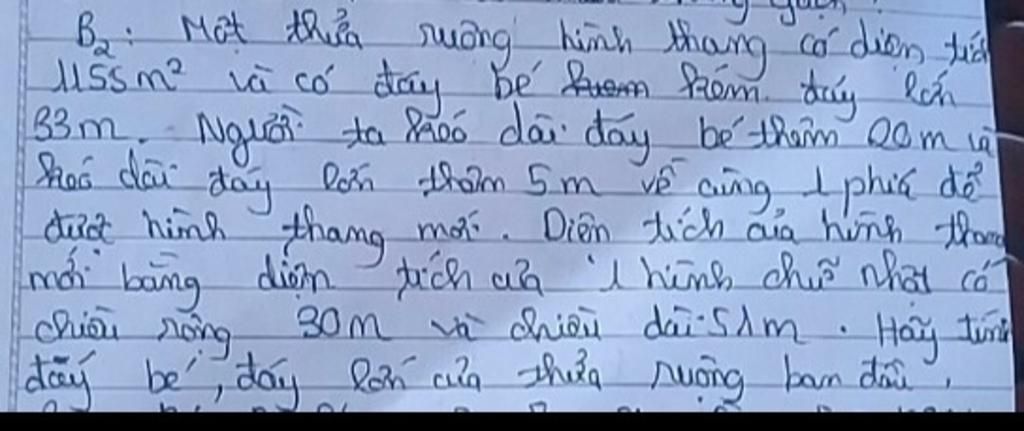 B2: Một thửa ruộng hình thang có diện tích
1155m² và có đáy bé kém đáy lớn
33m. Người ta kéo dài đáy bé thêm 20m và
kéo dài đáy lớn thêm 5m về cùng 1 phía để
được hình thang mới. Diện tích của hình thang
mới bằng diện tích của 1 hình chữ nhật có
chiều rộng 30m và chiều dài 51m. Hãy tính
đáy bé, đáy lớn của thửa ruộng ban đầu.